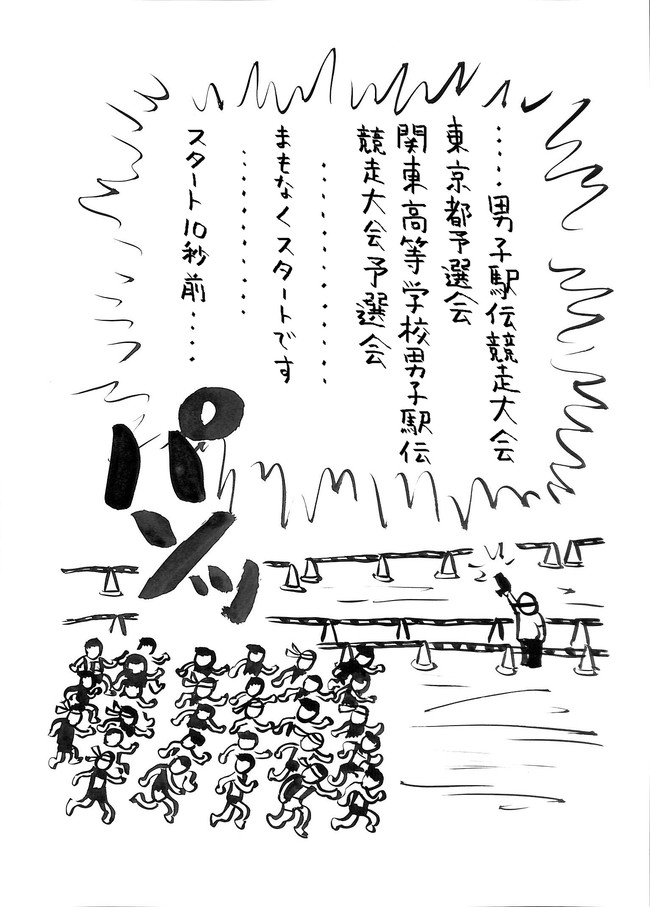 ・・・・・男子駅伝競走大会
東京都予選会
関東高等学校男子駅伝
競走大会予選会
・・・・・・・・・・・
まもなくスタートです
・・・・・・・・・
スタート10秒前・・・・
パンッ